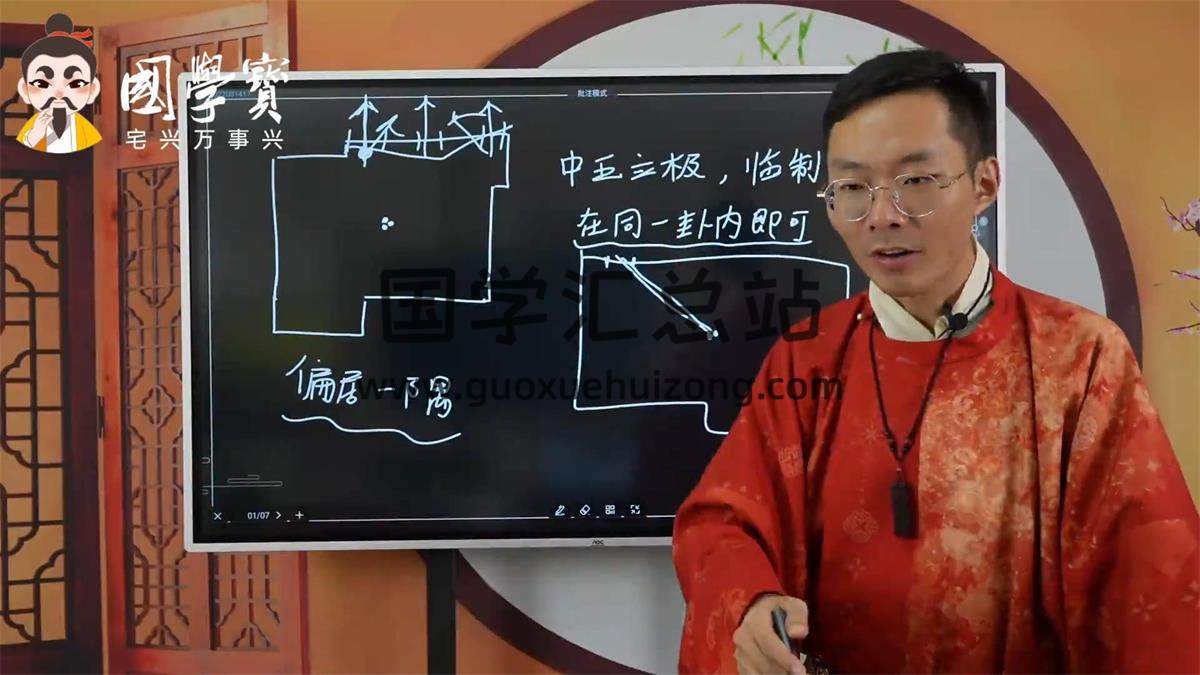 國學寳
宅兴万事兴
批注模式
中五立极，临制
在同一卦内即可
国学汇总站
www.guoxuehuizong.com
偏居一下隅
01/07
AOC